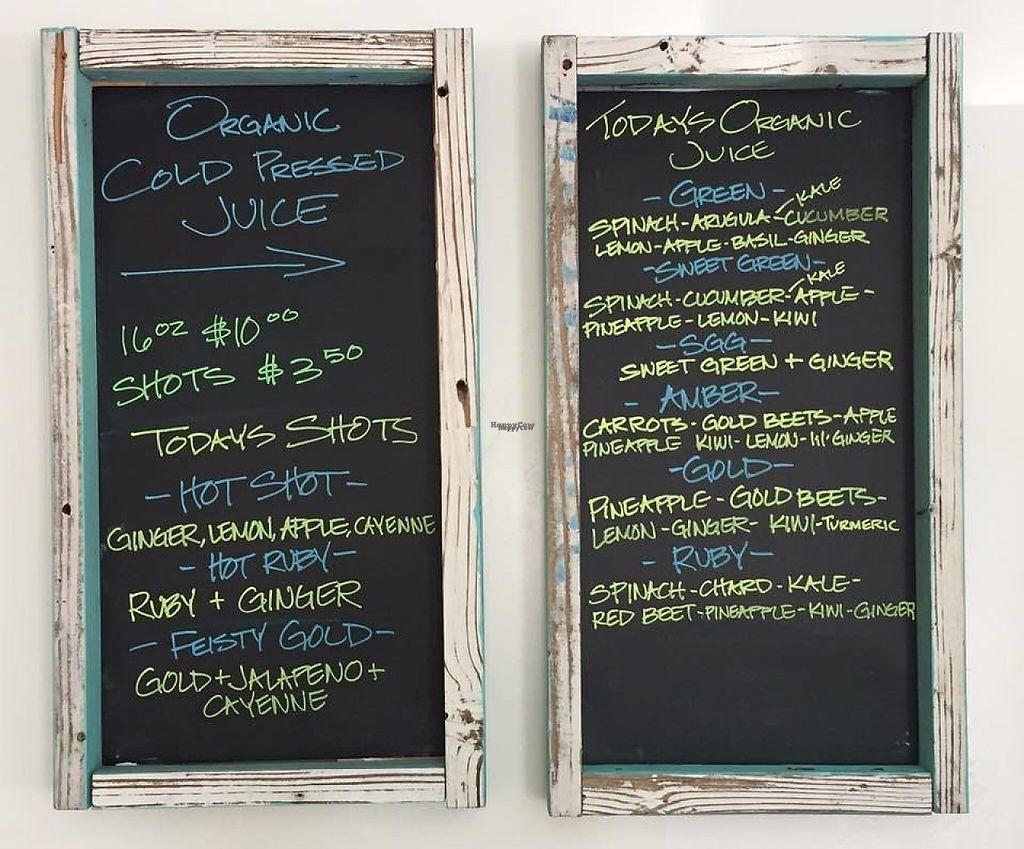 ORGANIC
COLD PRESSED
JUICE
16OZ $10.00
SHOTS $3.50
TODAYS SHOTS
- HOT SHOT -
GINGER, LEMON, APPLE, CAYENNE
- HOT RUBY -
RUBY + GINGER
- FEISTY GOLD -
GOLD + JALAPENO +
CAYENNE
HappyCow
TODAYS ORGANIC
JUICE
- GREEN -
KALE
SPINACH - ARUGULA - CUCUMBER
LEMON - APPLE - BASIL - GINGER
- SWEET GREEN -
KALE
SPINACH - CUCUMBER - APPLE -
PINEAPPLE - LEMON - KIWI
- SGG -
SWEET GREEN + GINGER
- AMBER -
CARROTS - GOLD BEETS - APPLE
PINEAPPLE KIWI - LEMON - GINGER
- GOLD -
PINEAPPLE - GOLD BEETS -
LEMON - GINGER - KIWI - TURMERIC
- RUBY -
SPINACH - CHARD - KALE -
RED BEET - PINEAPPLE - KIWI - GINGER